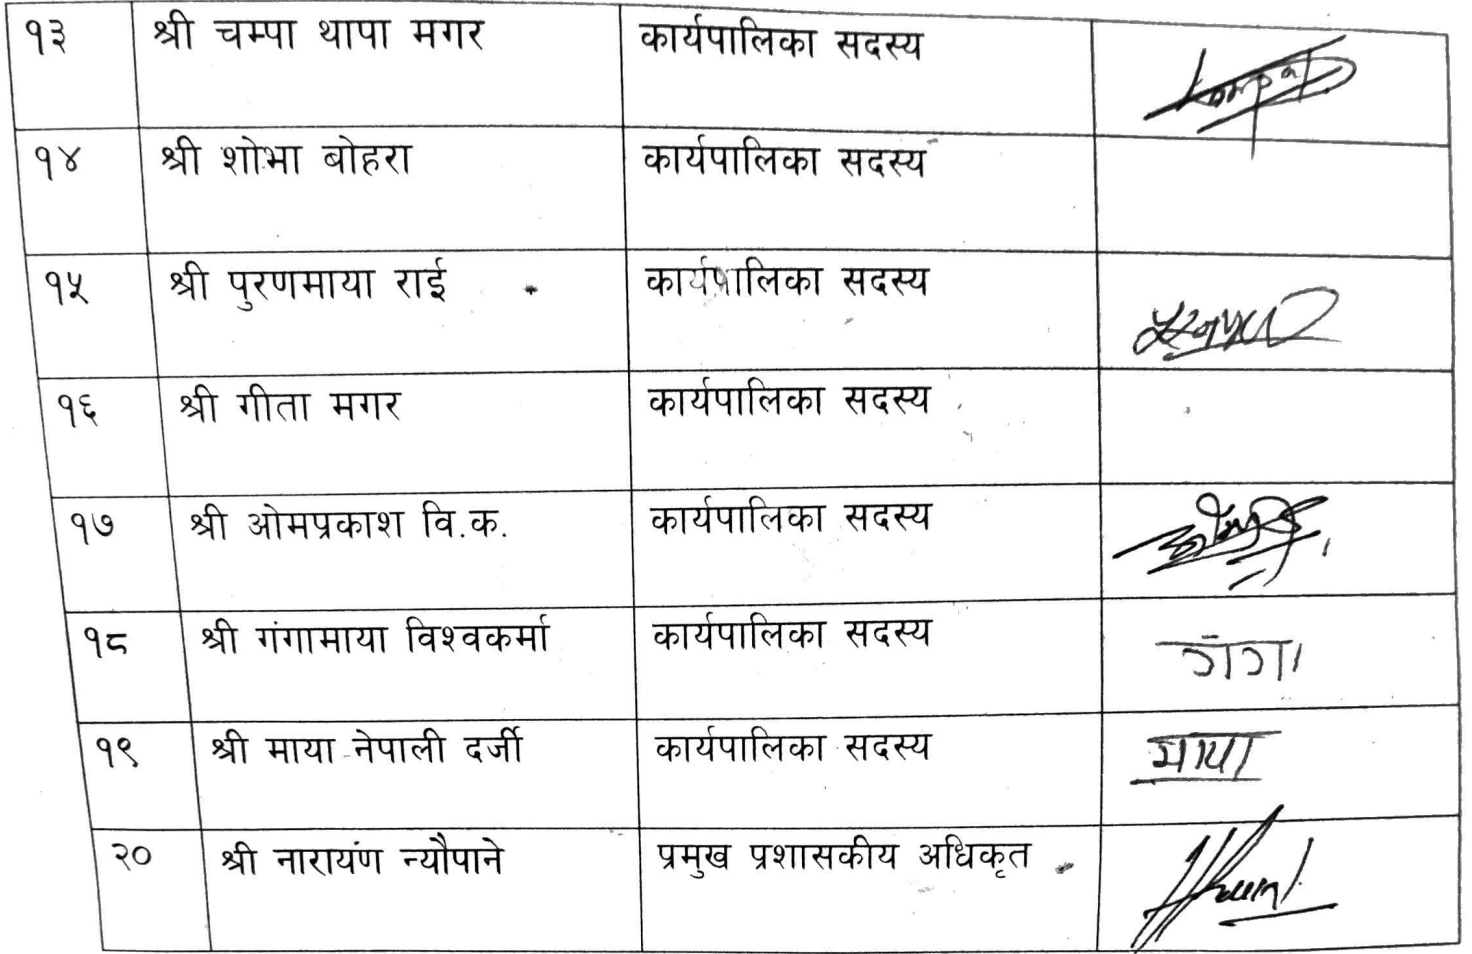 १३ श्री चम्पा थापा मगर कार्यपालिका सदस्य
१४ श्री शोभा बोहरा कार्यपालिका सदस्य
१५ श्री पुरणमाया राई कार्यपालिका सदस्य
१६ श्री गीता मगर कार्यपालिका सदस्य
१७ श्री ओमप्रकाश वि.क. कार्यपालिका सदस्य
१८ श्री गंगामाया विश्वकर्मा कार्यपालिका सदस्य गंगा
१९ श्री माया नेपाली दर्जी कार्यपालिका सदस्य माया
२० श्री नारायण न्यौपाने प्रमुख प्रशासकीय अधिकृत